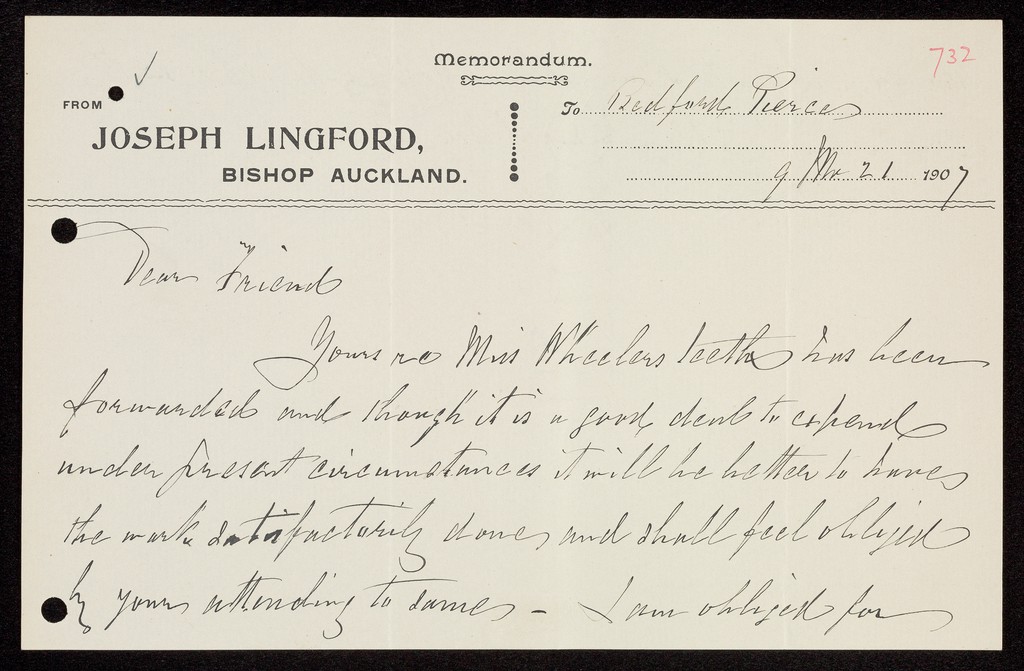 Memorandum.
732
FROM
To Bedford Pierce
JOSEPH LINGFORD,
BISHOP AUCKLAND.
9 Mo 21 1907
Dear Friend
Yours re Miss Wheelers teeth has been
forwarded and though it is a good deal to expend
under present circumstances it will be better to have
the work satisfactorily done, and shall feel obliged
by your attending to same - I am obliged for